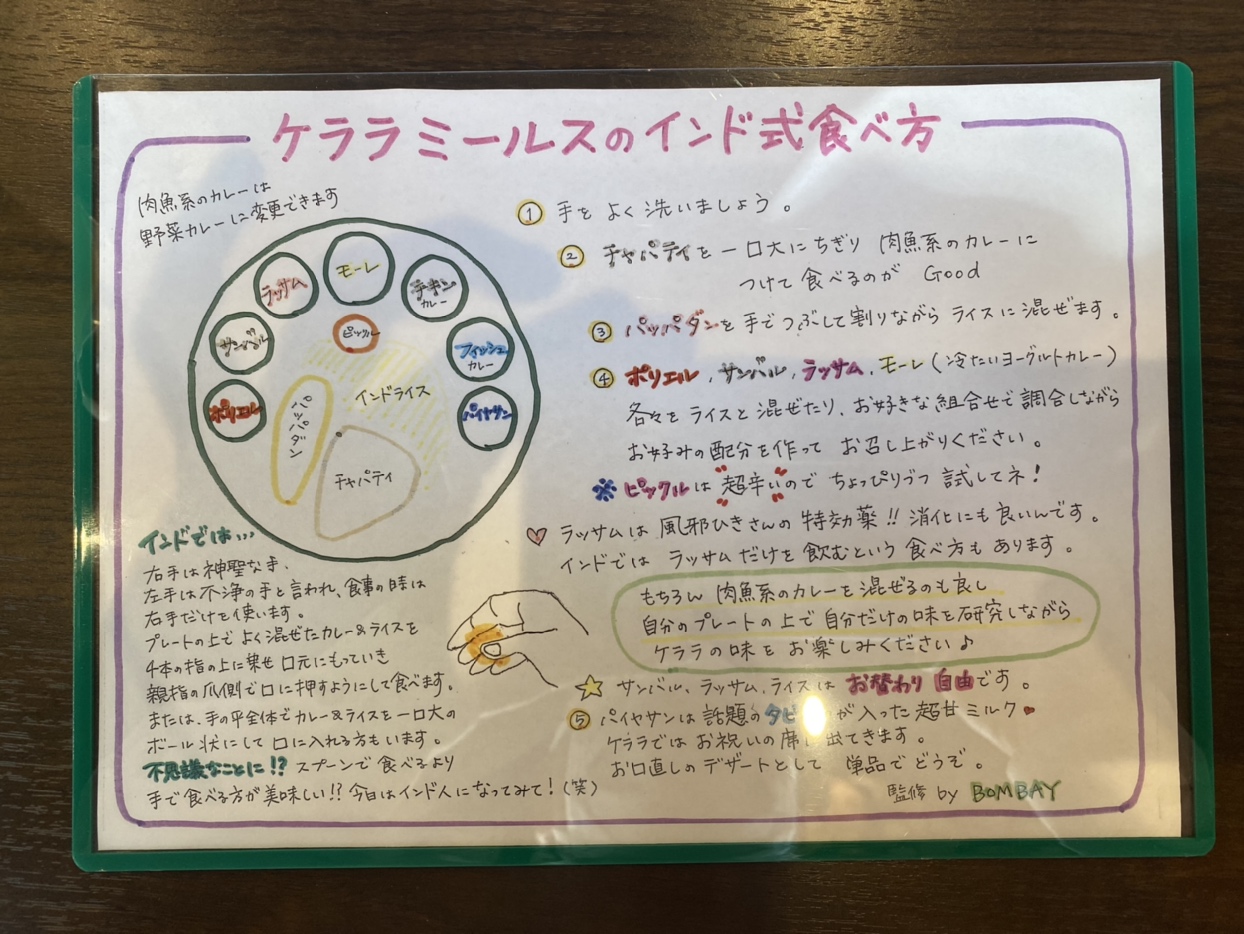 ケララミールスのインド式食べ方
肉魚系のカレーは
野菜カレーに変更できます
ポリエル
サンバル
ラッサム
モーレ
チキン
カレー
フィッシュ
カレー
パイヤサン
ピックル
インドライス
パッパダン
チャパティ
① 手をよく洗いましょう。
② チャパティを一口大にちぎり 肉魚系のカレーに
つけて食べるのが Good
③ パッパダンを手でつぶして割りながら ライスに混ぜます。
④ ポリエル、サンバル、ラッサム、モーレ(冷たいヨーグルトカレー)
各々をライスと混ぜたり、お好きな組合せで調合しながら
お好みの配分を作って お召し上がりください。
※ ピックルは"超辛い"ので ちょっぴりづつ 試してネ!
♡ ラッサムは 風邪ひきさんの 特効薬!! 消化にも良いんです。
インドでは ラッサムだけを 飲むという 食べ方もあります。
もちろん 肉魚系のカレーを 混ぜるのも良し
自分のプレートの上で 自分だけの味を研究しながら
ケララの味を お楽しみください♪
☆ サンバル、ラッサム、ライスは お替わり 自由です。
⑤ パイヤサンは 話題のタピ が入った 超甘ミルク♥
ケララでは お祝いの席に出てきます。
お口直しの デザートとして 単品で どうぞ。
監修 by BOMBAY
インドでは…
右手は神聖な手、
左手は不浄の手と言われ、食事の時は
右手だけを使います。
プレートの上で よく混ぜたカレー&ライスを
4本の指の上に乗せ 口元にもっていき
親指の爪側で口に押すようにして食べます。
または、手の平全体でカレー&ライスを一口大の
ボール状にして口に入れる方もいます。
不思議なことに!? スプーンで食べるより
手で食べる方が美味しい!? 今日はインド人になってみて!(笑)